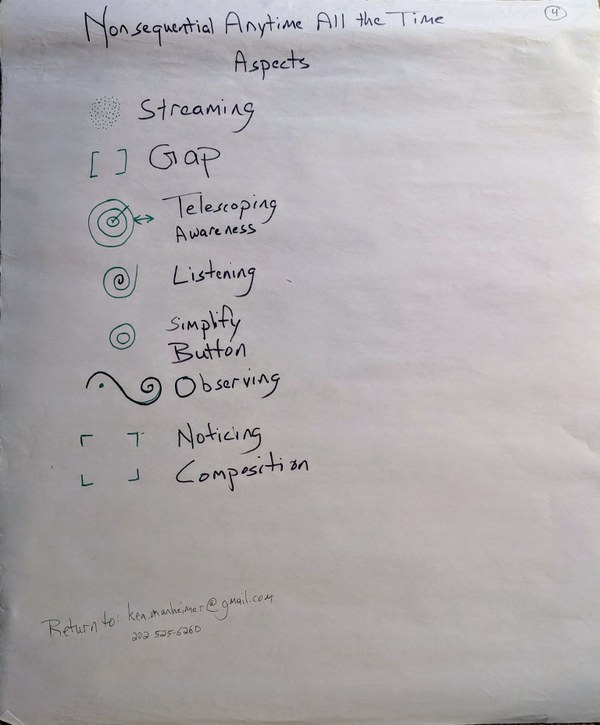 Nonsequential Anytime All the Time
4
Aspects
Streaming
[ ] Gap
Telescoping
Awareness
Listening
Simplify
Button
Observing
Noticing
Composition
Return to: ken.manheimer@gmail.com
202 525-6260